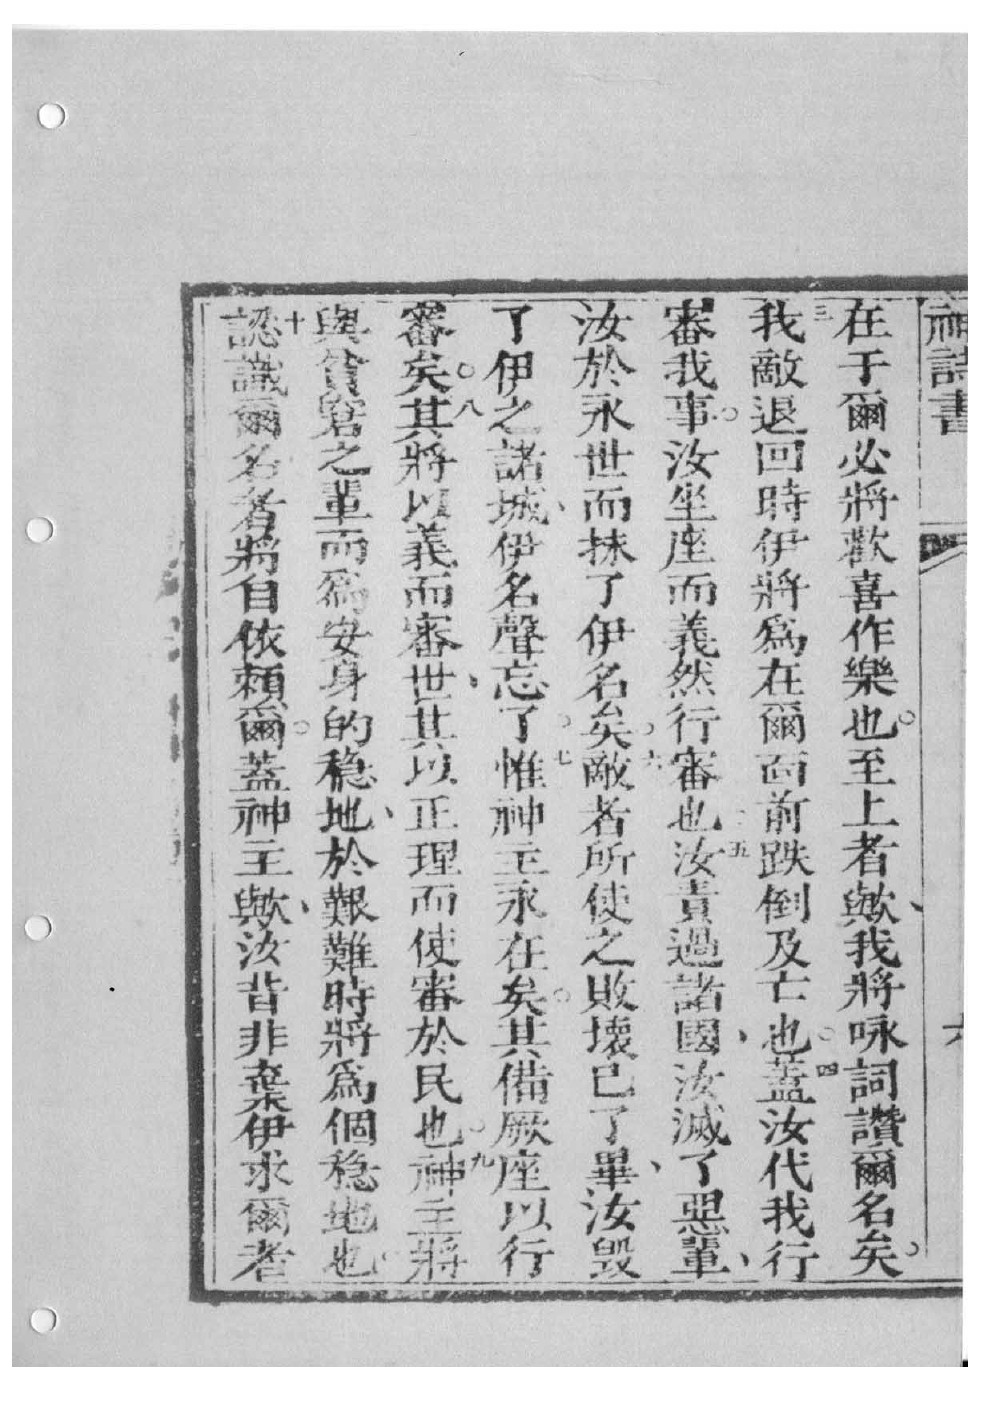 神詩書
在于爾必將歡喜作樂也。至上者歟、我將咏詞讚爾名矣。
三我敵退回時伊將為在爾面前跌倒及亡也。四蓋汝代我行
審我事。汝坐座而義然行審也五汝責過諸國、汝滅了惡輩、
汝於永世而抹了伊名矣。六敵者所使之敗壞已了畢、汝毀
了伊之諸城、伊名聲忘了。七惟神主永在矣。其備厥座以行
審矣。八其將以義而審世、其以正理而使審於民也。九神主將
與貧窘之輩而為安身的穩地、於艱難時將為個穩地也。
十認識爾名者將自依賴爾。蓋神主歟、汝背非棄伊求爾者